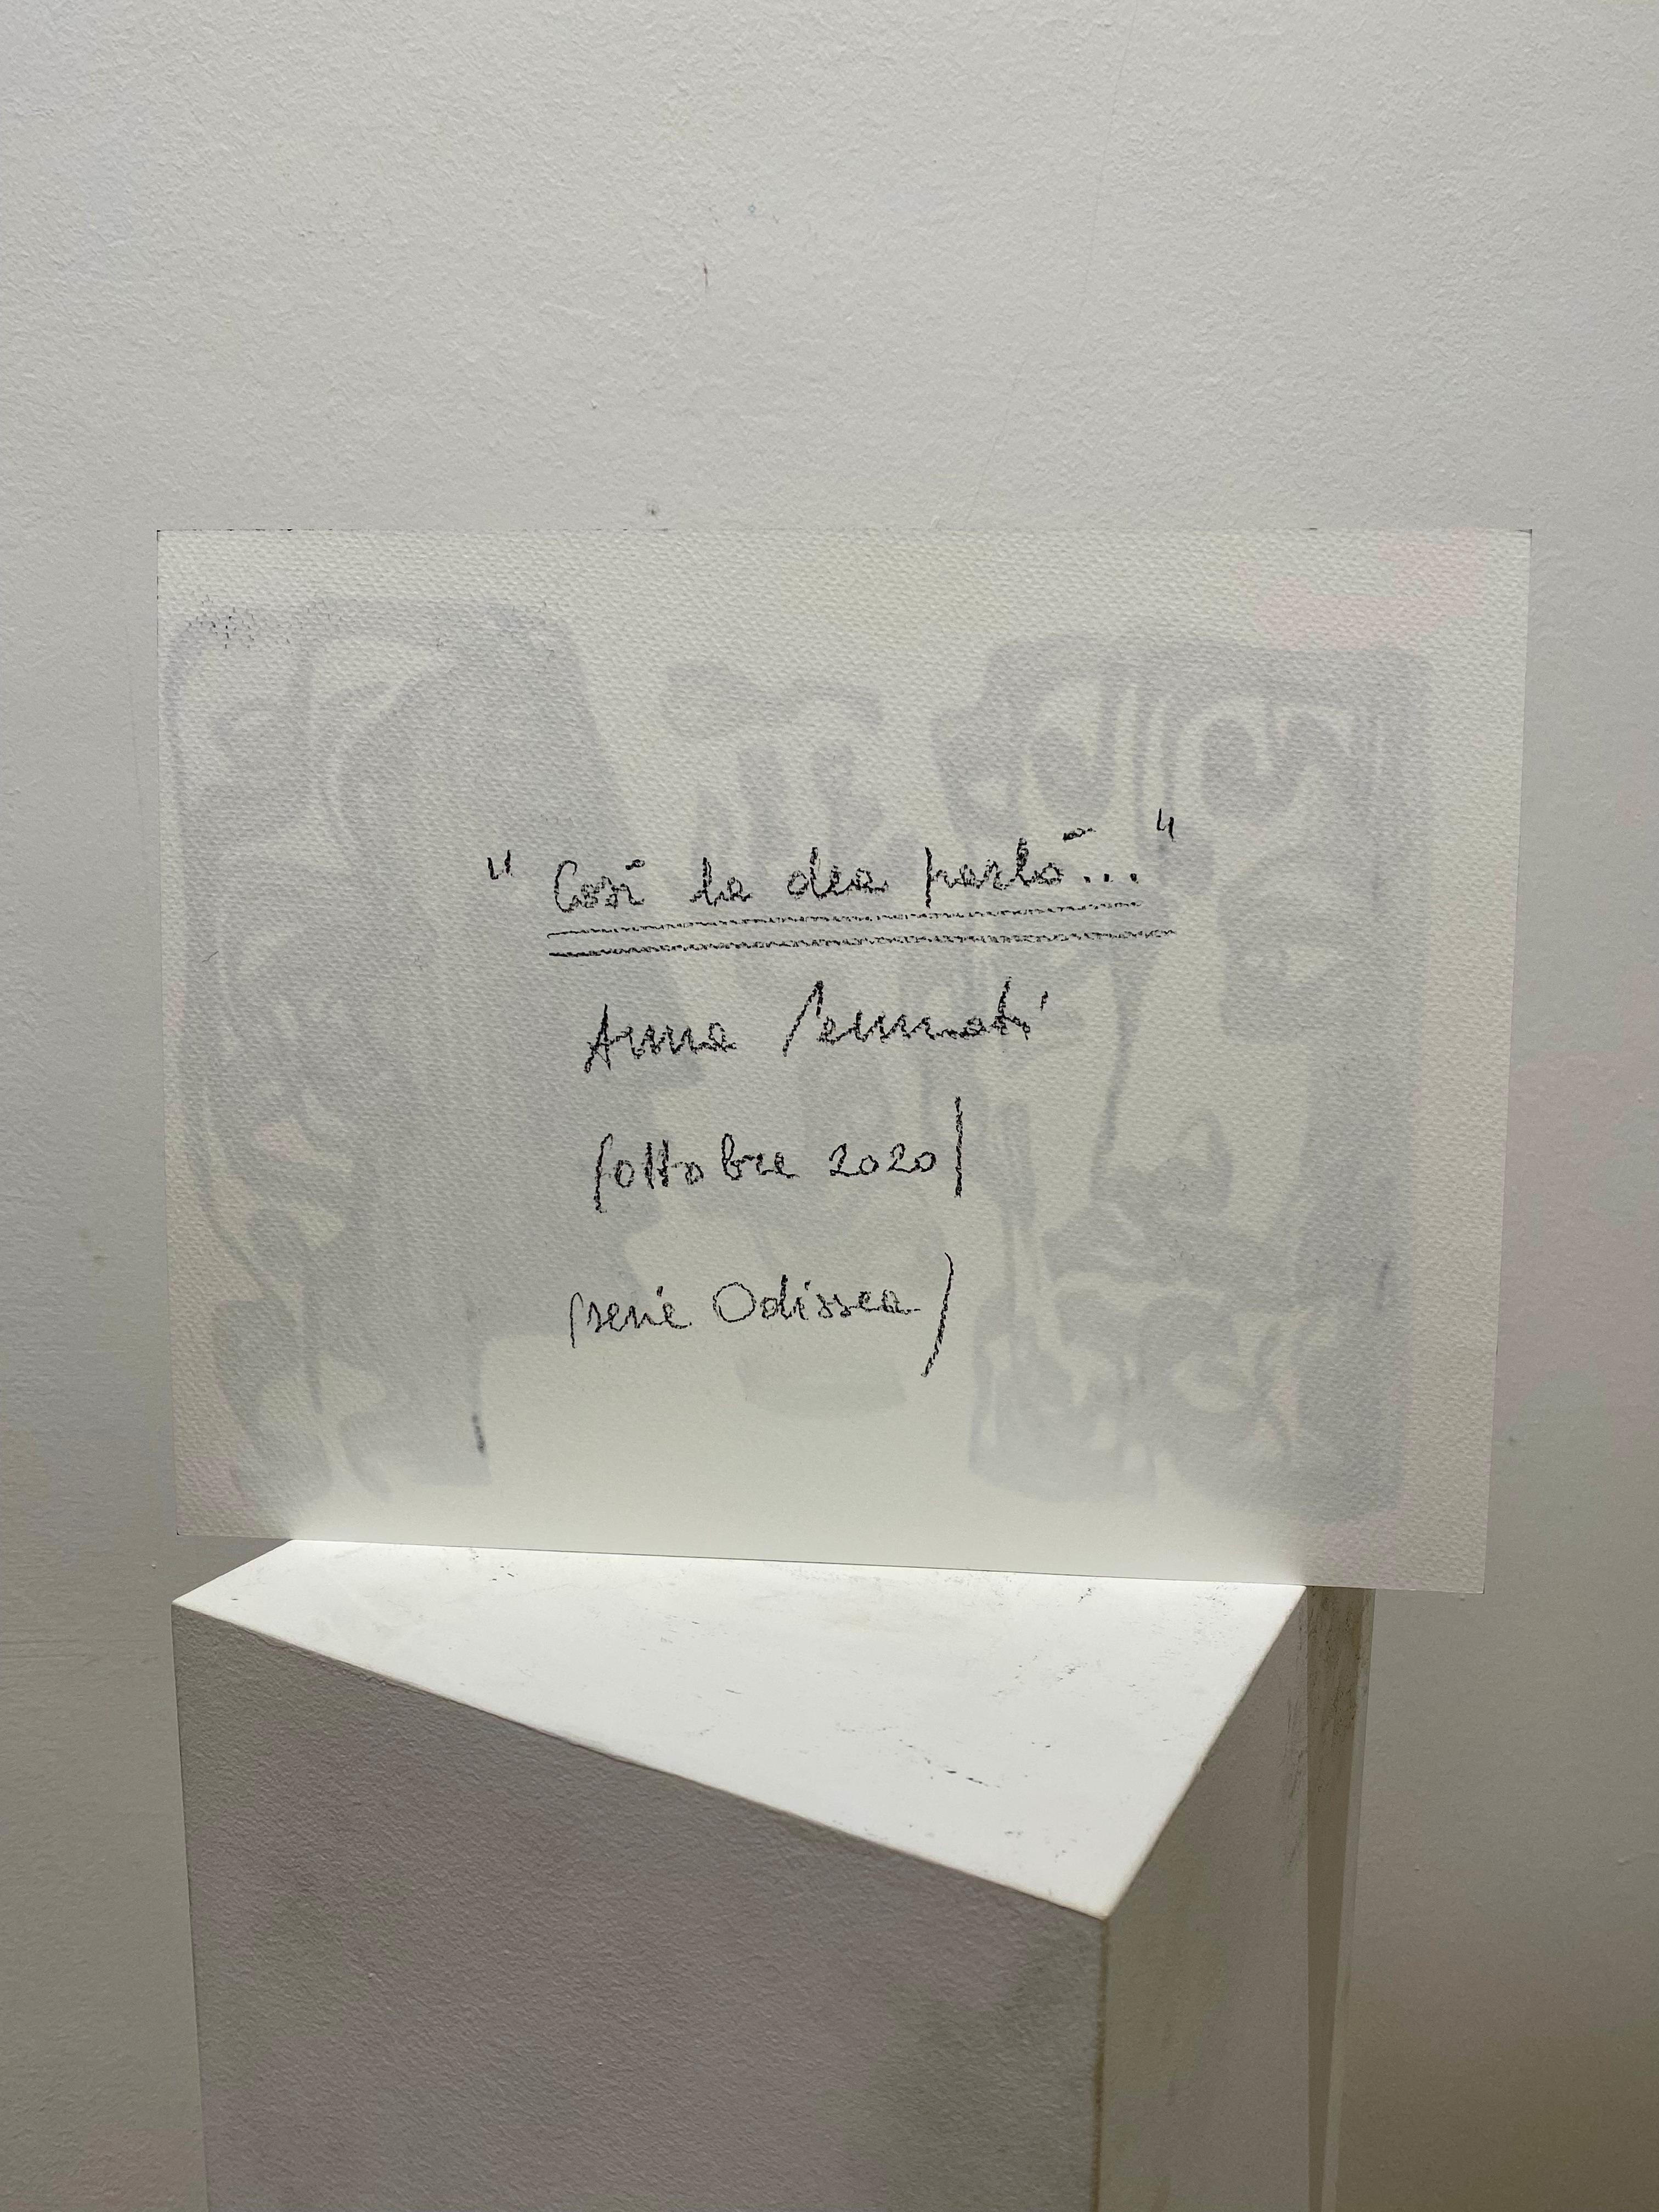 "Così la dea parlò..."
Anna Pennati
(ottobre 2020)
(serie Odissea)